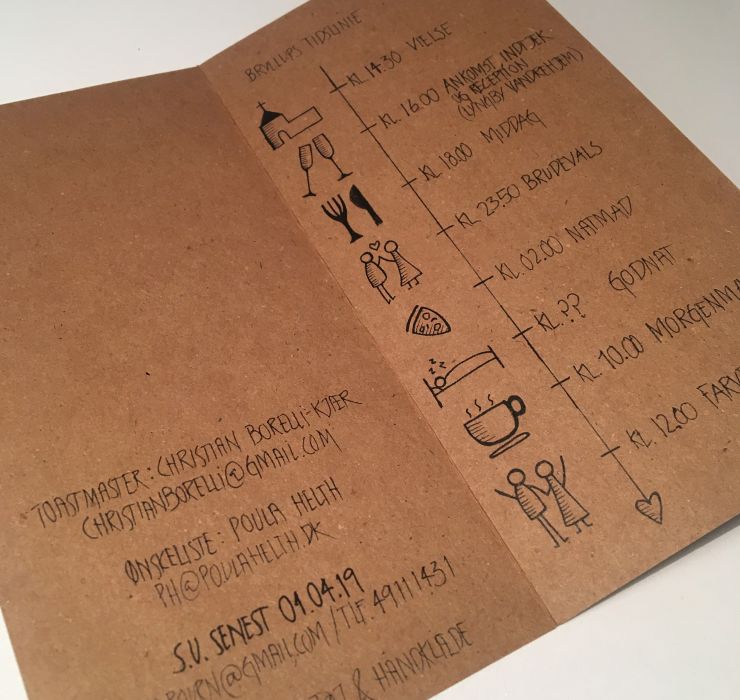 TOASTMASTER: CHRISTIAN BORELLI-KJÆR
CHRISTIANBORELLI@GMAIL.COM
ØNSKELISTE: POULA HELTH
PH@POULAHELTH.DK
S.U. SENEST 01.04.19
@GMAIL.COM / TLF. 49111431
& HÅNDKLÆDE
BRYLLUPS TIDSLINIE
KL. 14.30 VIELSE
KL. 16.00 ANKOMST INDTJEK
OG RECEPTION
(LYNGBY VANDREHJEM)
KL 18.00 MIDDAG
KL 23.50 BRUDEVALS
KL. 02.00 NATMAD
KL. ?? GODNAT
KL. 10.00
KL. 12.00